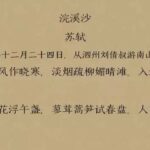 浣溪沙
苏轼
十二月二十四日，从泗州刘倩叔游南山
风作晓寒，淡烟疏柳媚晴滩，入
花浮午盏，蓼茸蒿笋试春盘，人